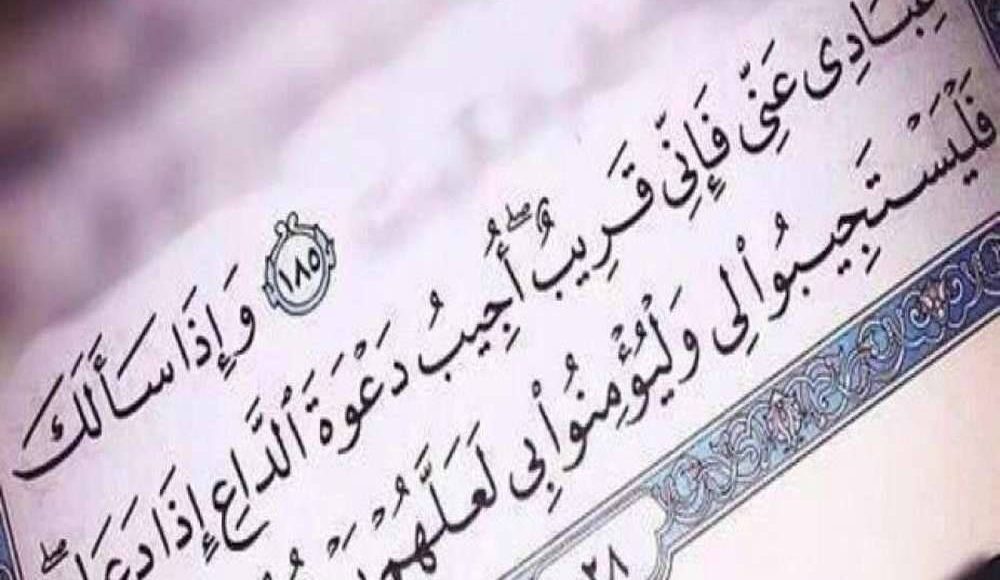 ١٨٥ وَإِذَا سَأَلَكَ
عِبَادِى عَنِّى فَإِنِّى قَرِيبٌ ۖ أُجِيبُ دَعْوَةَ ٱلدَّاعِ إِذَا دَعَا
فَلْيَسْتَجِيبُوا۟ لِى وَلْيُؤْمِنُوا۟ بِى لَعَلَّهُمْ
٢٨